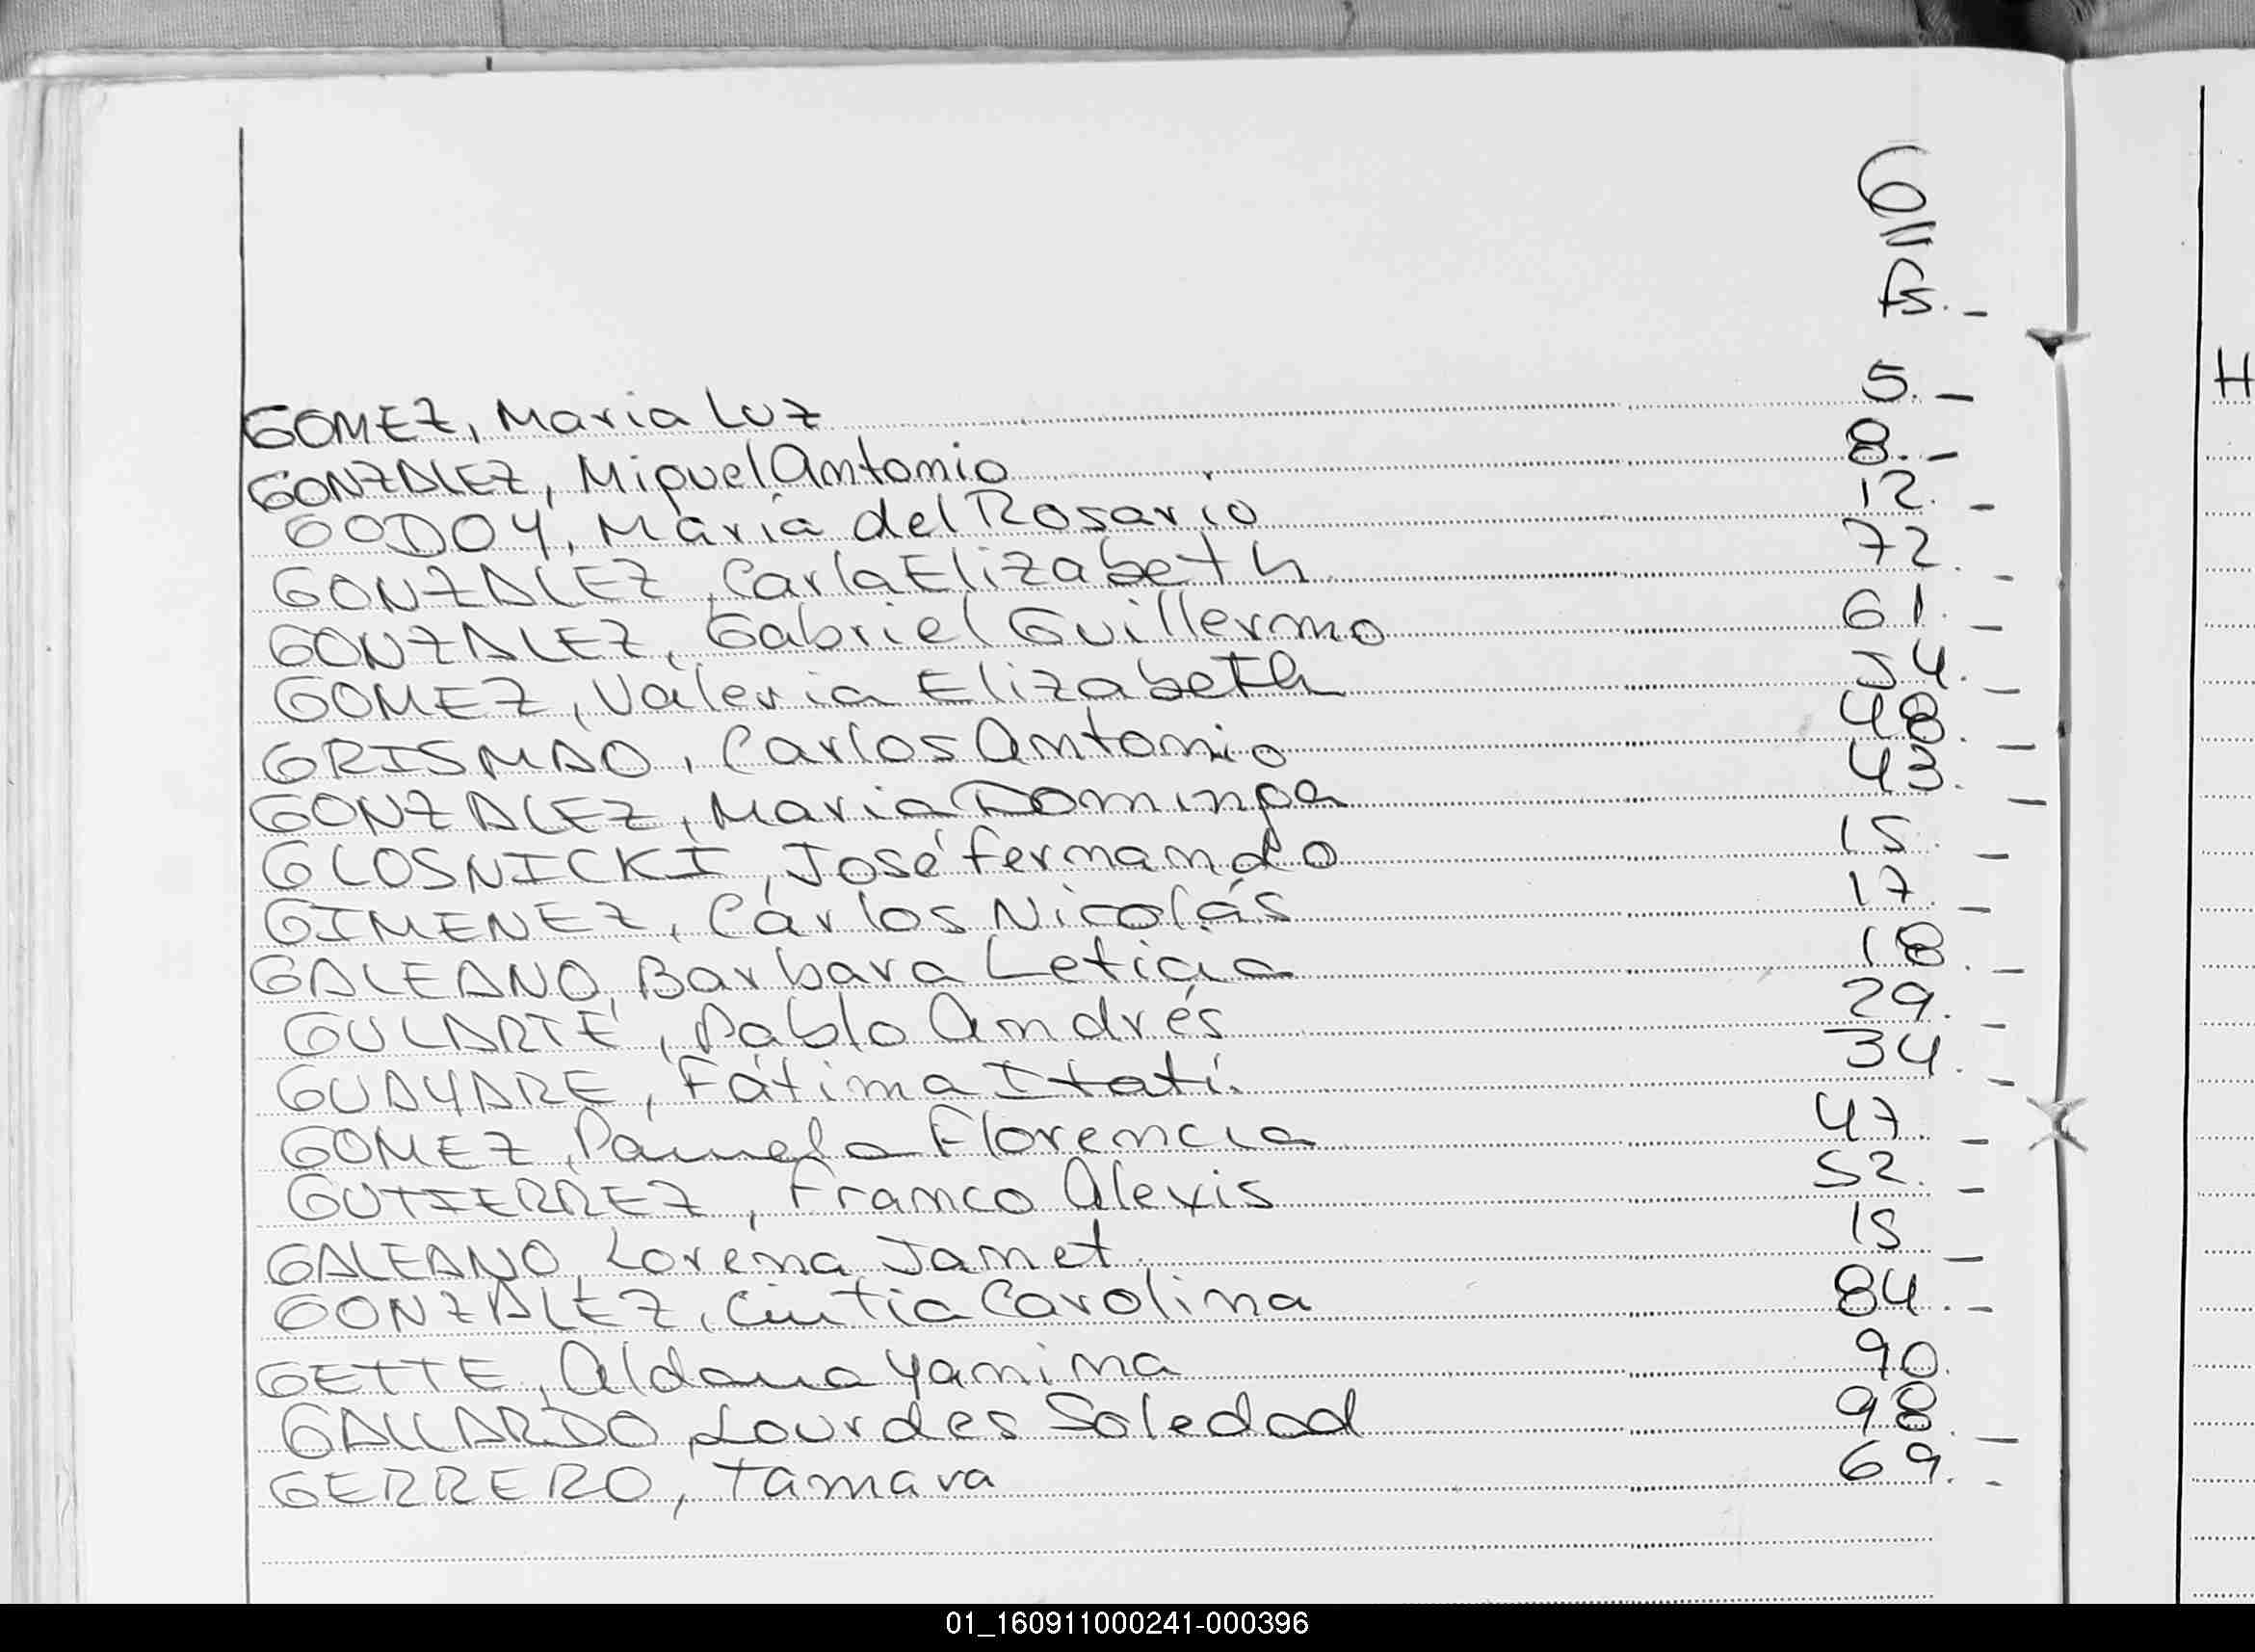 G//
fs. -
GOMEZ, Maria Luz 5. -
GONZALEZ, Miguel Antonio 8. -
GODOY, Maria del Rosario 12. -
GONZALEZ, Carla Elizabeth 72. -
GONZALEZ, Gabriel Guillermo 61. -
GOMEZ, Valeria Elizabeth 54. -
GRISMAO, Carlos Antonio 48. -
GONZALEZ, Maria Dominga 43. -
GLOSNICKI, José Fernando 15. -
GIMENEZ, Carlos Nicolás 17. -
GALEANO, Barbara Leticia 18. -
GULARTE, Pablo Andrés 29. -
GUAYARE, Fátima Itatí. 34. -
GOMEZ, Pamela Florencia 47. -
GUTIERREZ, Franco Alexis 52. -
GALEANO, Lorena Janet 15 -
GONZALEZ, Cintia Carolina 84. -
GETTE, Aldana Yanina 90.
GALLARDO, Lourdes Soledad 98. -
GERRERO, Tamara 69. -
H
01_160911000241-000396